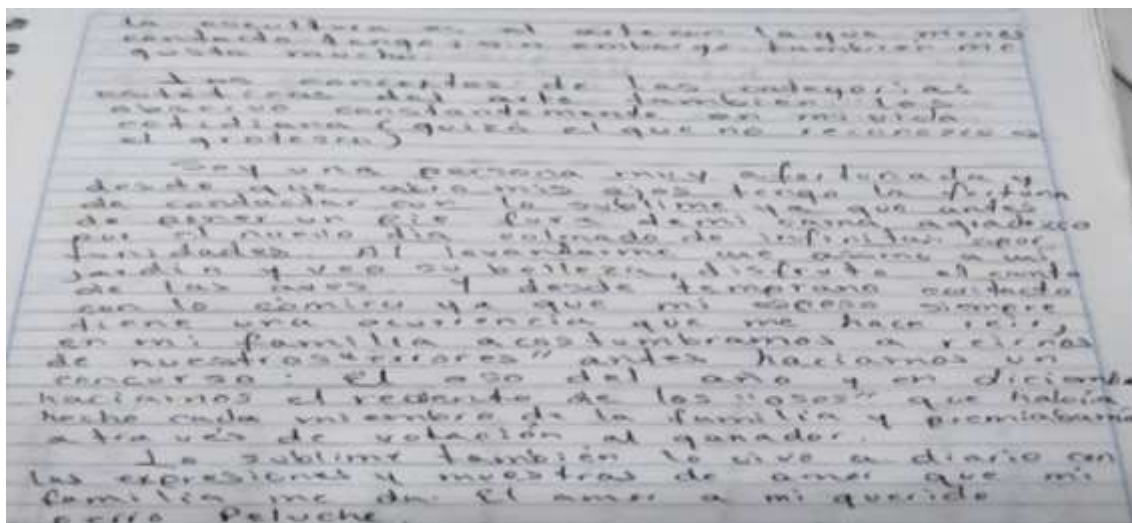 La escultura es el arte con la que menos
contacto tengo; sin embargo también me
gusta mucho.
Los conceptos de las categorías
estéticas del arte también los
observo constantemente en mi vida
cotidiana (quizá el que no reconozco es
el grotesco)
Soy una persona muy afortunada y
desde que abro mis ojos tengo la fortuna
de contactar con lo sublime ya que antes
de poner un pie fuera de mi cama agradezco
por el nuevo día colmado de infinitas opor
tunidades. Al levantarme me asomo a mi
jardín y veo su belleza, disfruto el canto
de las aves. Y desde temprano contacto
con lo cómico ya que mi esposo siempre
tiene una ocurrencia que me hace reír,
en mi familia acostumbramos a reírnos
de nuestros "errores" antes hacíamos un
concurso: El oso del año y en diciembre
hacíamos el recuento de los "osos" que había
hecho cada miembro de la familia y premiabamos
a través de votación al ganador.
Lo sublime también lo vivo a diario con
las expresiones y muestras de amor que mi
familia me da. El amor a mi querido
perro Peluche.